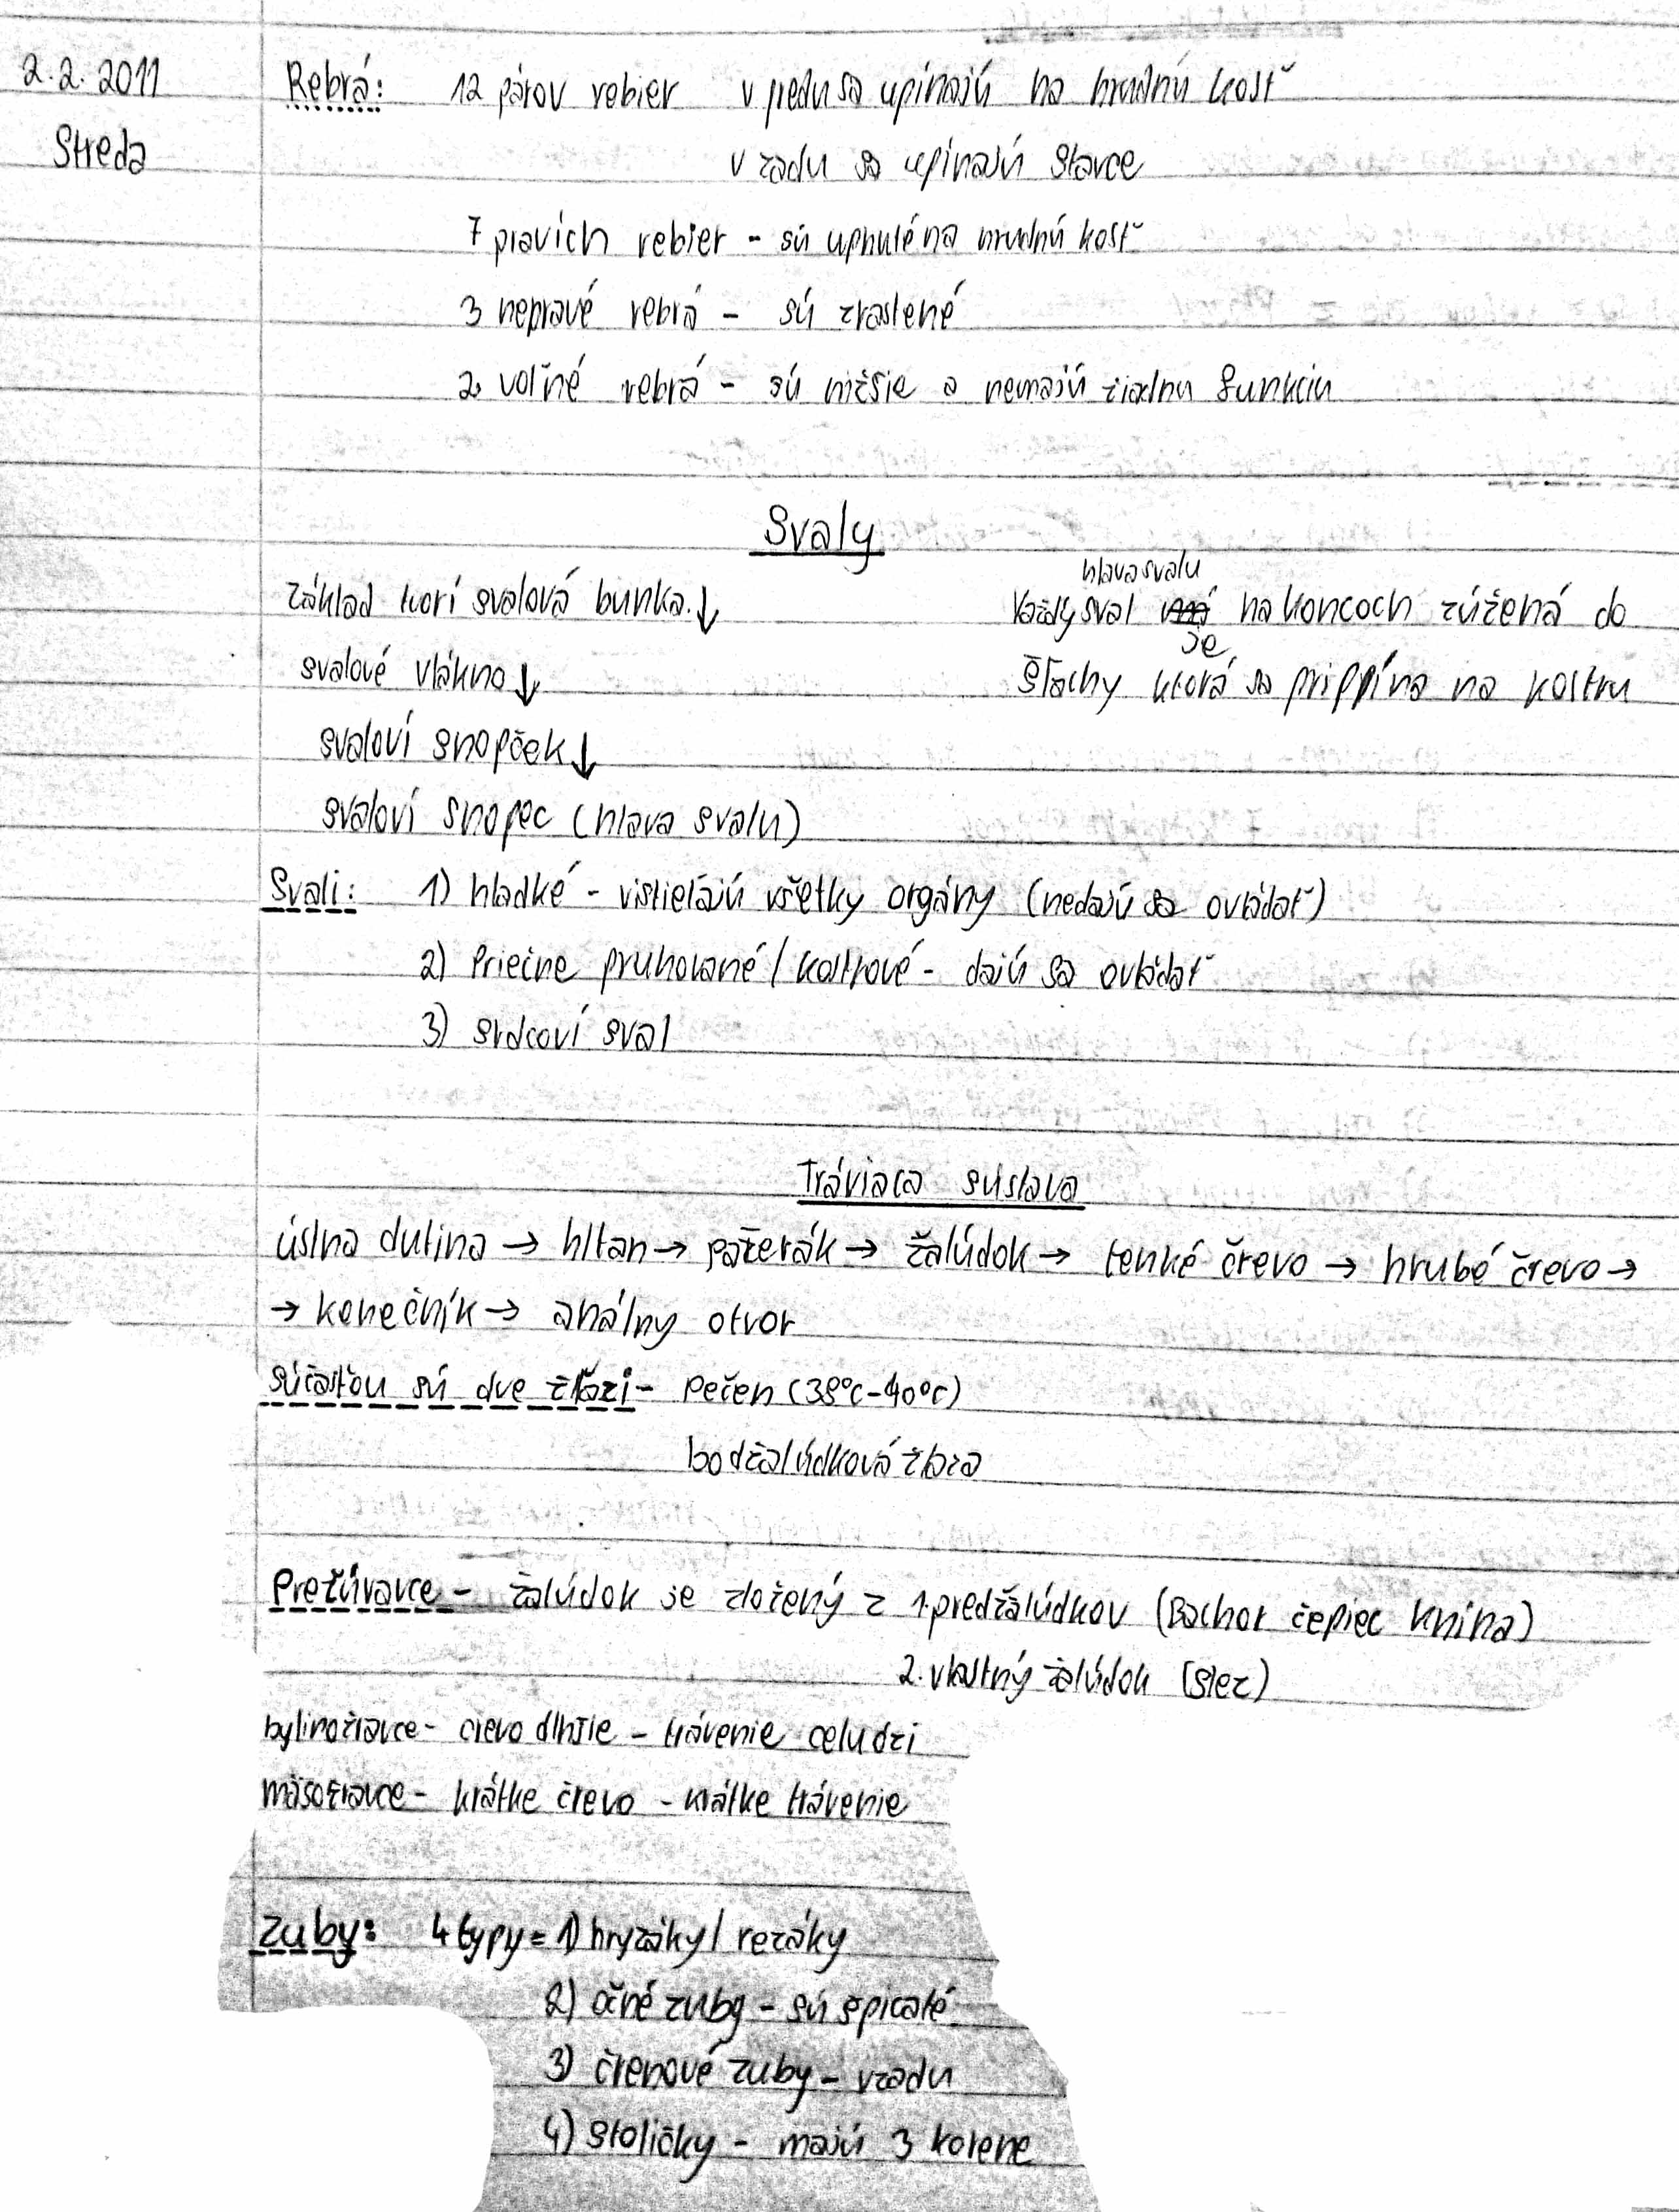 2.2.2011
Streda
Rebrá: 12 párov rebier v predu sa upínajú na hrudnú kosť
v zadu sa upínajú stavce
7 pravích rebier - sú upnuté na hrudnú kosť
3 nepravé rebrá - sú zrastené
2 voľné rebrá - sú nižšie a nemajú žiadnu funkciu
Svaly
Základ tvorí svalová bunka.↓
svalové vlákno↓
svaloví snopček↓
svaloví snopec (hlava svalu)
hlava svalu
Každý sval má na koncoch zúžená do
je
šľachy ktorá sa prippína na kostru
Svali: 1) hladké - vistielajú všetky orgány (nedajú sa ovládať)
2) Priečne pruhované / kostrové - dajú sa ovládať
3) srdcoví sval
Tráviaca sústava
ústna dutina → hltan → pažerák → žalúdok → tenké črevo → hrubé črevo →
→ konečník → análny otvor
súčasťou sú dve žľazi - Pečen (38°c-40°c)
bodžalúdková žlaza
Prežúvavce - žalúdok je zložený z 1.predžalúdkov (Bachor čepiec kniha)
2.vlastný žalúdok (slez)
bylinožravce - crevo dlhšie - trávenie celudzi
mäsožravce - krátke črevo - krátke trávenie
Zuby: 4 typy = 1) hryzáky / rezáky
2) očné zuby - sú špicaté
3) črenové zuby - vzadu
4) stoličky - majú 3 korene